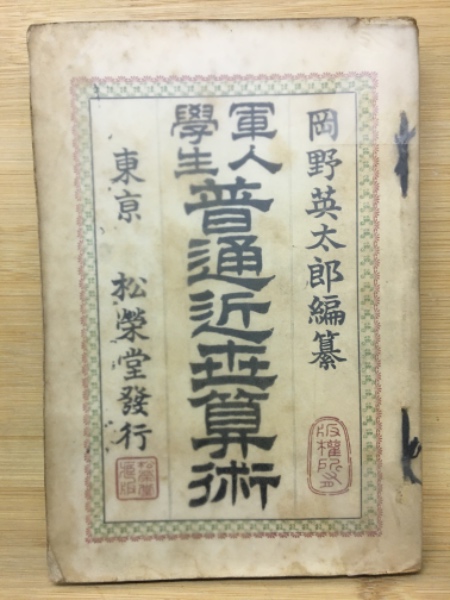 岡野英太郎編纂
版權所有
軍人
學生
普通近世算術
東京
松榮堂發行